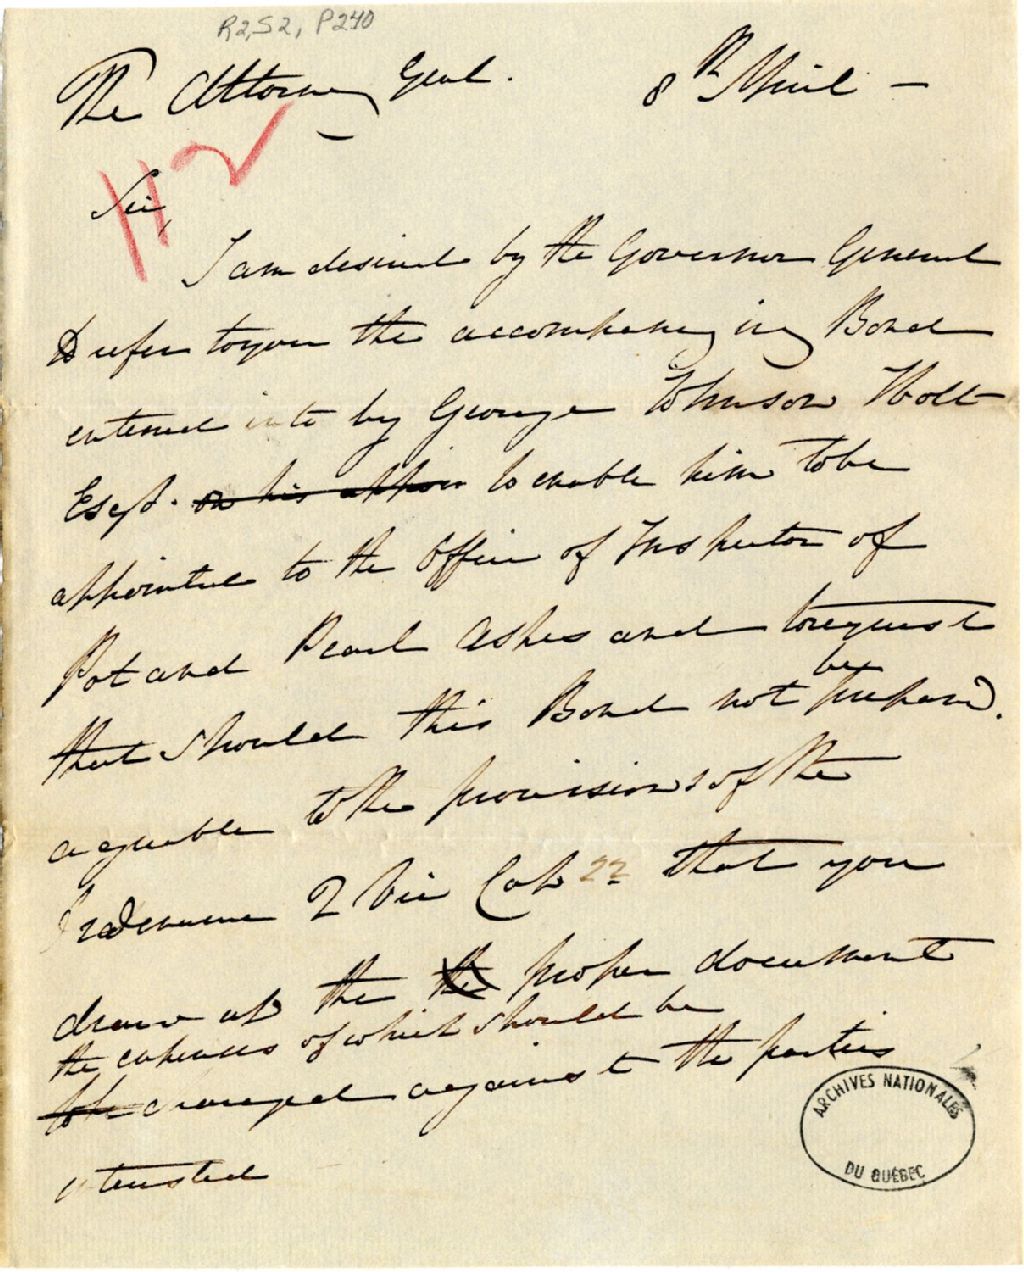 R2,S2, P240
The Attorney Genl. 8th April –
112
Sir,
I am desired by the Governor General
to refer to you the accompanying Bond
entered into by George Johnson Holt
Esqr. on his appoin to enable him to be
appointed to the Office of Inspector of
Pot and Pearl Ashes and to request
that should this Bond not be prepared
agreeable to the provisions of the
Ordinance 2 Vic Cap 22 that you
draw up the the proper document
the expenses of which should be
to be charged against the parties
interested
ARCHIVES NATIONALES
DU QUÉBEC